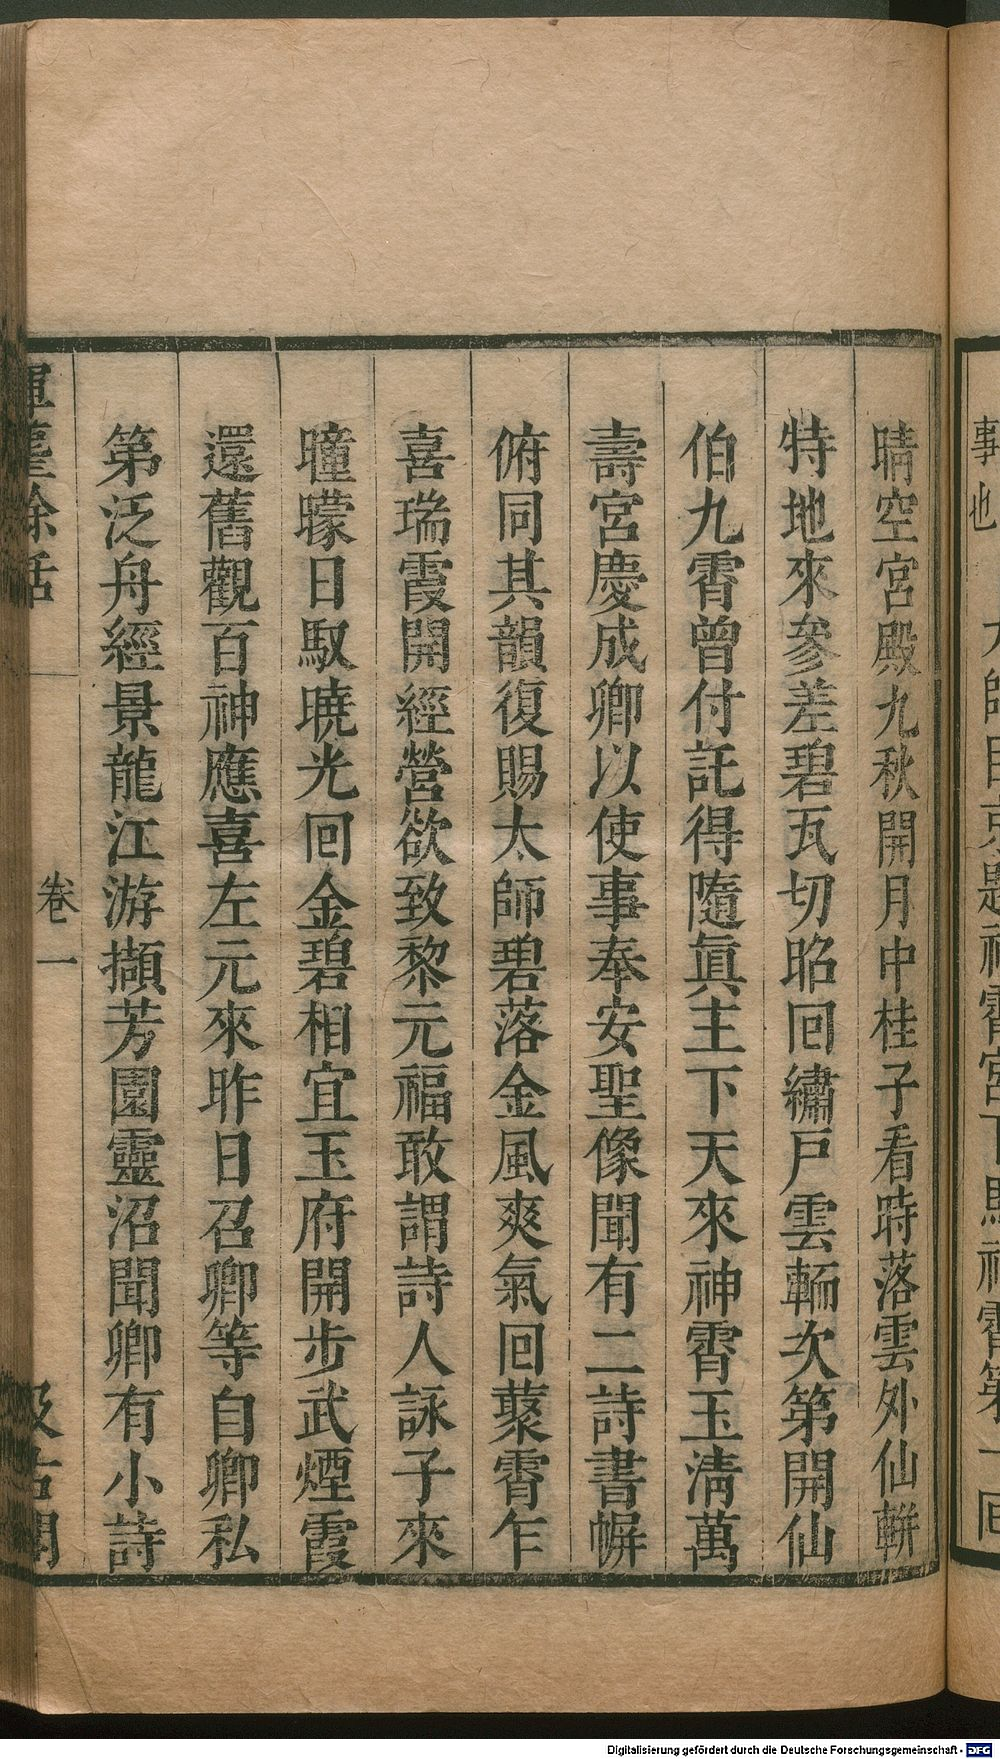 事也
題神霄宮
晴空宮殿九秋開月中桂子看時落雲外仙輧
特地來參差碧瓦切昭回繡戸雲輀次第開仙
伯九霄曾付託得隨眞主下天來神霄玉淸萬
壽宮慶成卿以使事奉安聖像聞有二詩書幈
俯同其韻復賜太師碧落金風爽氣回藂霄乍
喜瑞霞開經營欲致黎元福敢謂詩人詠子來
曈曚日馭曉光回金碧相宜玉府開步武煙霞
還舊觀百神應喜左元來昨日召卿等自卿私
第泛舟經景龍江游擷芳園靈沼聞卿有小詩
揮麈餘話
卷一
汲古閣
Digitalisierung gefördert durch die Deutsche Forschungsgemeinschaft - DFG